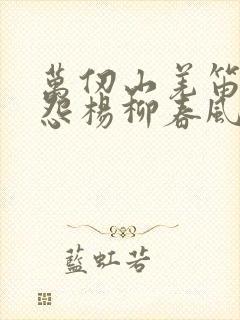 萬仞山羌笛
怨楊柳春風
藍虹若